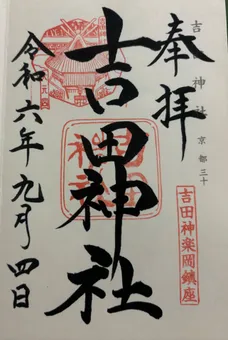 吉神社 京都三十
奉拝
吉田神楽岡鎮座
吉田神社
令和六年九月四日